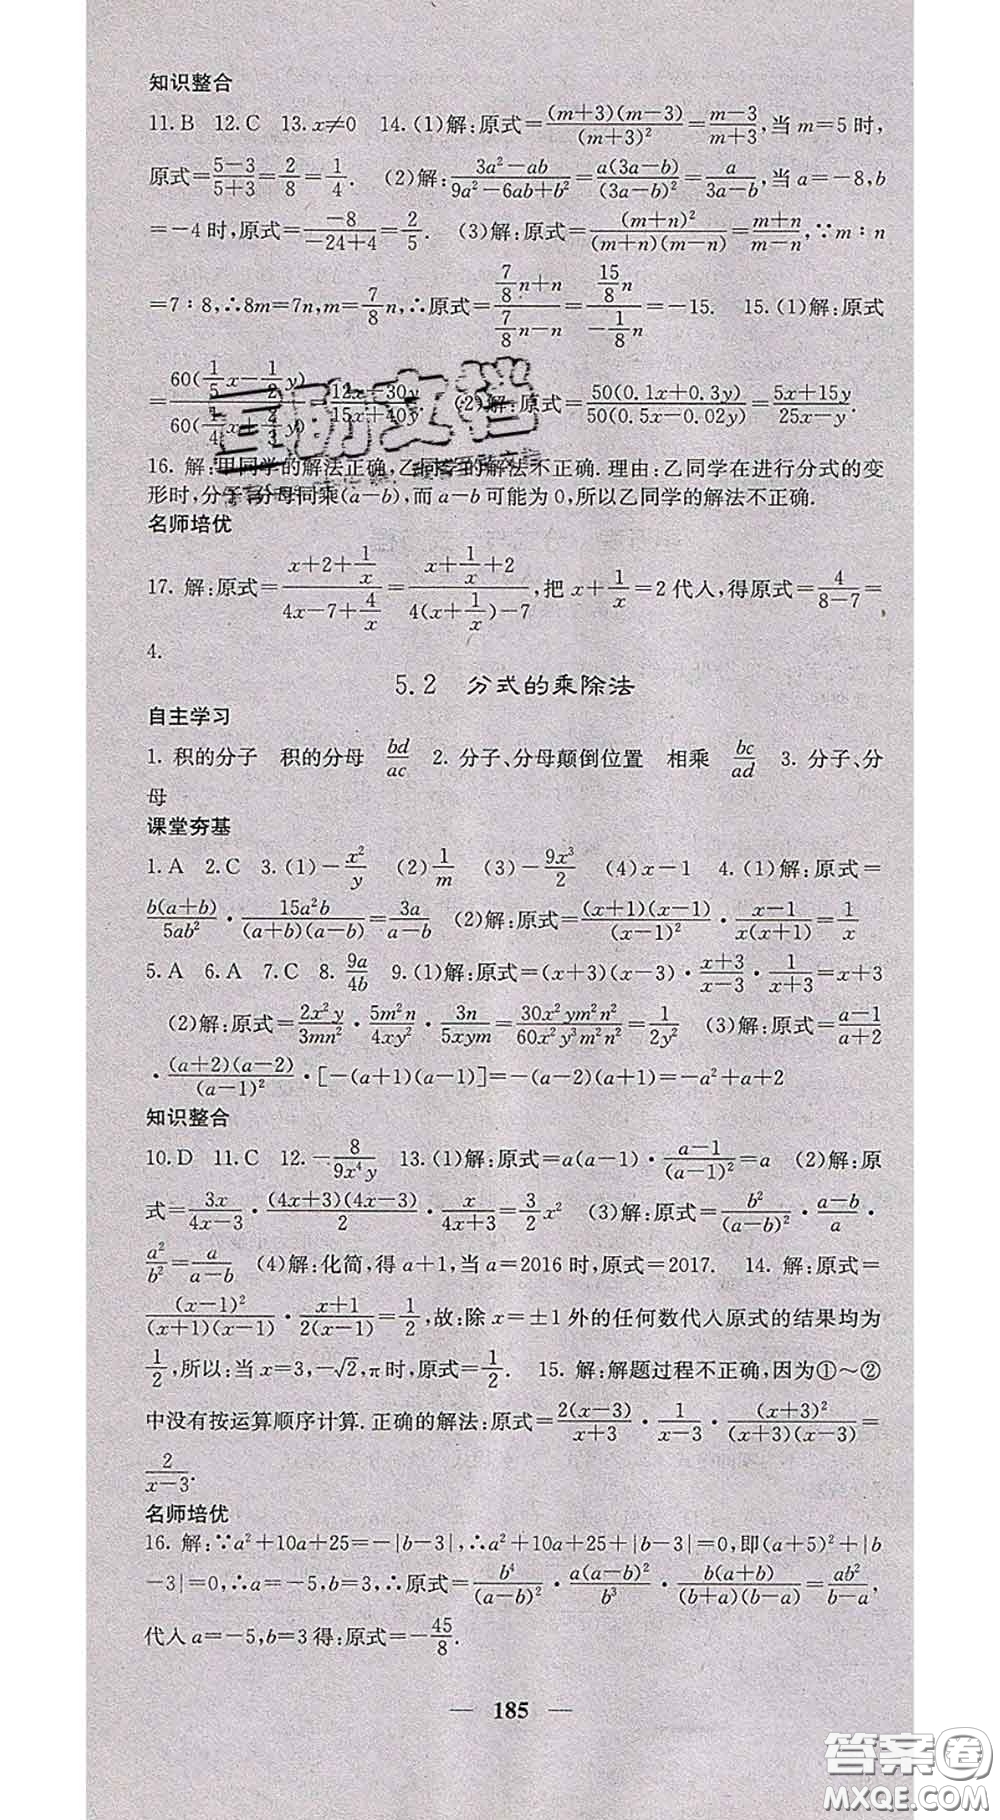 知识整合
11. B 12. C 13. x≠0 14. (1)解:原式=\frac{(m+3)(m-3)}{(m+3)^2}=\frac{m-3}{m+3},当 m=5 时,
原式=\frac{5-3}{5+3}=\frac{2}{8}=\frac{1}{4}. (2)解:\frac{3a^2-ab}{9a^2-6ab+b^2}=\frac{a(3a-b)}{(3a-b)^2}=\frac{a}{3a-b},当 a=-8,b
=-4 时,原式=\frac{-8}{-24+4}=\frac{2}{5}. (3)解:原式=\frac{(m+n)^2}{(m+n)(m-n)}=\frac{m+n}{m-n},∵m∶n
=7∶8,∴8m=7n,m=\frac{7}{8}n,∴原式=\frac{\frac{7}{8}n+n}{\frac{7}{8}n-n}=\frac{\frac{15}{8}n}{-\frac{1}{8}n}=-15. 15. (1)解:原式
=\frac{60(\frac{1}{5}x-\frac{1}{2}y)}{60(\frac{1}{4}x+\frac{2}{3}y)}=\frac{12x-30y}{15x+40y}. (2)解:原式=\frac{50(0.1x+0.3y)}{50(0.5x-0.02y)}=\frac{5x+15y}{25x-y}.
16. 解:甲同学的解法正确,乙同学的解法不正确. 理由:乙同学在进行分式的变
形时,分子、分母同乘(a-b),而 a-b 可能为 0,所以乙同学的解法不正确.
名师培优
17. 解:原式=\frac{x+2+\frac{1}{x}}{4x-7+\frac{4}{x}}=\frac{x+\frac{1}{x}+2}{4(x+\frac{1}{x})-7},把 x+\frac{1}{x}=2 代入,得原式=\frac{4}{8-7}=
4.
5.2 分式的乘除法
自主学习
1. 积的分子 积的分母 \frac{bd}{ac} 2. 分子、分母颠倒位置 相乘 \frac{bc}{ad} 3. 分子、分
母
课堂夯基
1. A 2. C 3. (1)-\frac{x^2}{y} (2)\frac{1}{m} (3)-\frac{9x^3}{2} (4)x-1 4. (1)解:原式=
\frac{b(a+b)}{5ab^2}·\frac{15a^2b}{(a+b)(a-b)}=\frac{3a}{a-b} (2)解:原式=\frac{(x+1)(x-1)}{(x-1)^2}·\frac{x-1}{x(x+1)}=\frac{1}{x}
5. A 6. A 7. C 8. \frac{9a}{4b} 9. (1)解:原式=(x+3)(x-3)·\frac{x+3}{x-3}·\frac{1}{x+3}=x+3
(2)解:原式=\frac{2x^2y}{3mn^2}·\frac{5m^2n}{4xy^2}·\frac{3n}{5xym}=\frac{30x^2ym^2n^2}{60x^2y^3m^2n^2}=\frac{1}{2y^2} (3)解:原式=\frac{a-1}{a+2}
·\frac{(a+2)(a-2)}{(a-1)^2}·[-(a+1)(a-1)]=-(a-2)(a+1)=-a^2+a+2
知识整合
10. D 11. C 12. -\frac{8}{9x^4y} 13. (1)解:原式=a(a-1)·\frac{a-1}{(a-1)^2}=a (2)解:原
式=\frac{3x}{4x-3}·\frac{(4x+3)(4x-3)}{2}·\frac{x}{4x+3}=\frac{3}{2}x^2 (3)解:原式=\frac{b^2}{(a-b)^2}·\frac{a-b}{a}·
\frac{a^2}{b^2}=\frac{a}{a-b} (4)解:化简,得 a+1,当 a=2016 时,原式=2017. 14. 解:原式=
\frac{(x-1)^2}{(x+1)(x-1)}·\frac{x+1}{2(x-1)}=\frac{1}{2},故:除 x=±1 外的任何数代入原式的结果均为
\frac{1}{2},所以:当 x=3,-√2,π时,原式=\frac{1}{2}. 15. 解:解题过程不正确,因为①~②
中没有按运算顺序计算. 正确的解法:原式=\frac{2(x-3)}{x+3}·\frac{1}{x-3}·\frac{(x+3)^2}{(x+3)(x-3)}=
\frac{2}{x-3}.
名师培优
16. 解:∵a^2+10a+25=-|b-3|,∴a^2+10a+25+|b-3|=0,即(a+5)^2+|b
-3|=0,∴a=-5,b=3,∴原式=\frac{b^4}{(a-b)^2}·\frac{a(a-b)^2}{b^3}·\frac{b(a+b)}{(b+a)(b-a)}=\frac{ab^2}{b-a},
代入 a=-5,b=3 得:原式=-\frac{45}{8}.
— 185 —
答案圈
MXQE.COM